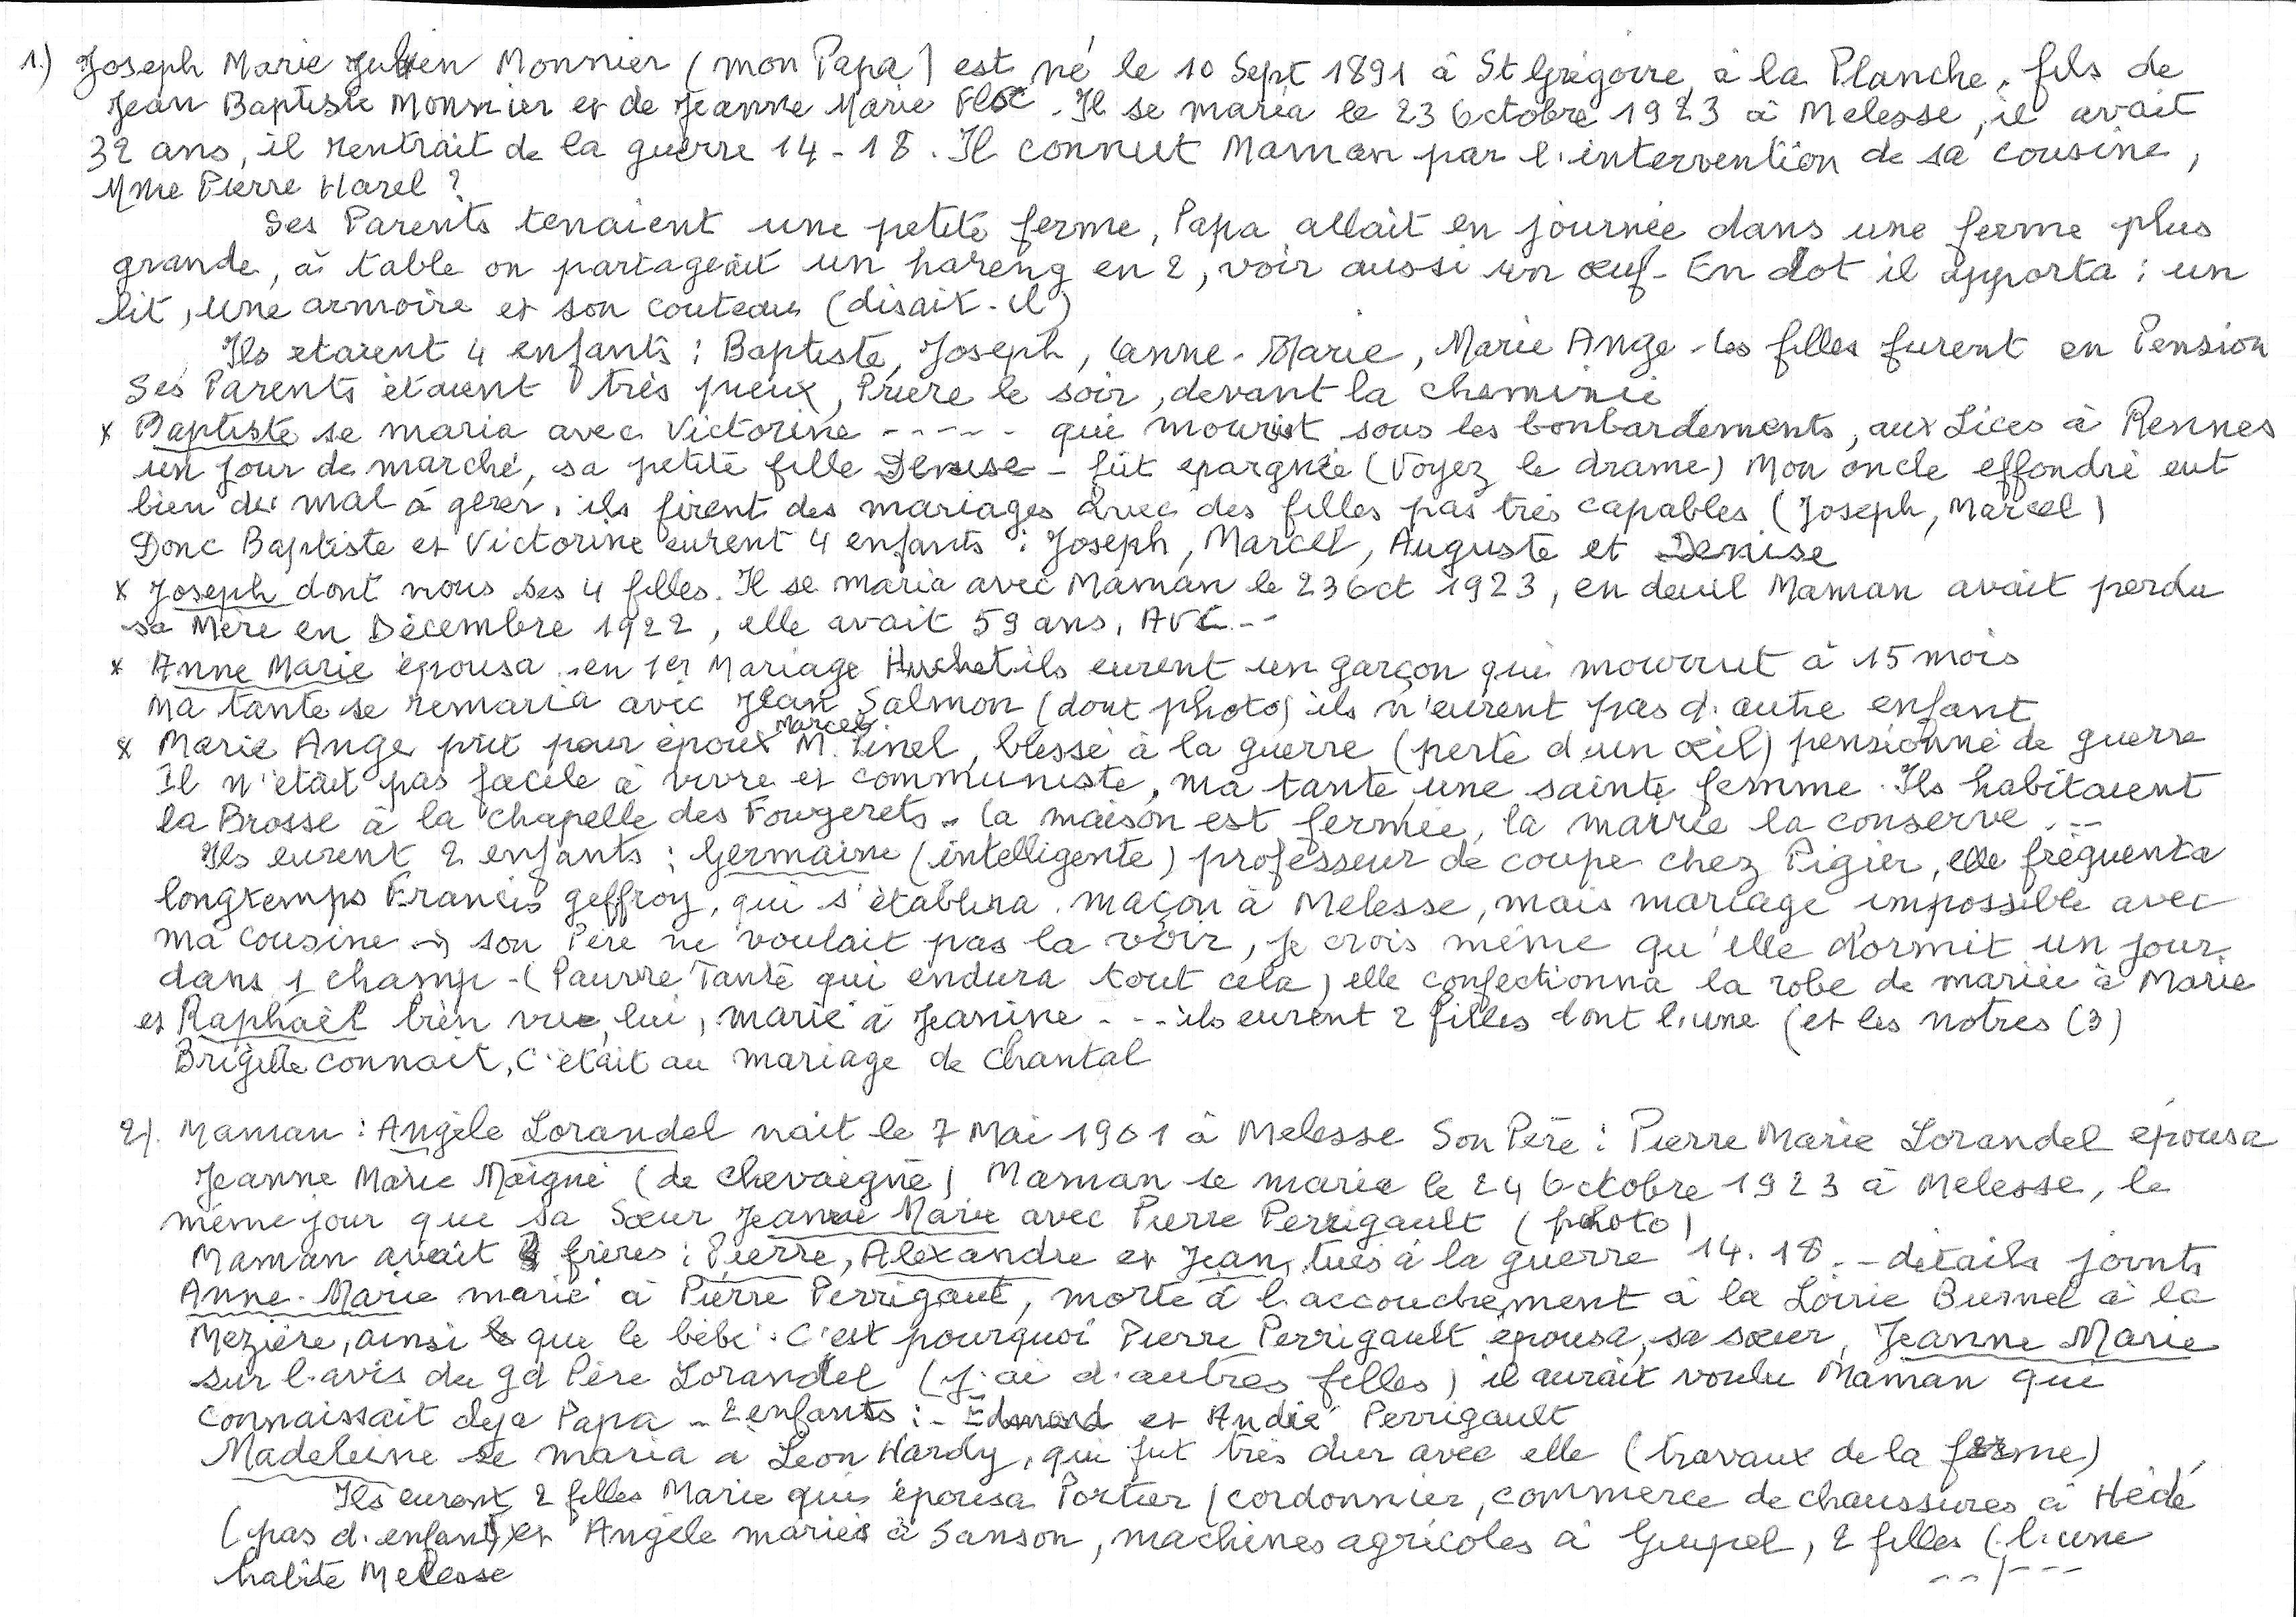 1.) Joseph Marie Julien Monnier (mon Papa) est né le 10 Sept 1891 à St Grégoire, à la Planche, fils de
Jean Baptiste Monnier et de Jeanne Marie Floc. Il se maria le 23 Octobre 1923 à Melesse, il avait
32 ans, il rentrait de la guerre 14-18. Il connut Maman par l'intervention de sa cousine,
Mme Pierre Harel ?
Ses Parents tenaient une petite ferme, Papa allait en journée dans une ferme plus
grande, à table on partageait un hareng en 2, voir aussi un œuf - En dot il apporta : un
lit, une armoire et son couteau (disait-il)
Ils etaient 4 enfants : Baptiste, Joseph, Anne-Marie, Marie Ange - les filles furent en Pension
Ses Parents étaient très pieux, Prière le soir, devant la cheminée
x Baptiste se maria avec Victorine ----- qui mourut sous les bonbardements, aux Lices à Rennes
un jour de marché, sa petite fille Denise - fût epargnée (Voyez le drame) Mon oncle effondré eut
bien du mal à gérer, ils firent des mariages avec des filles pas très capables (Joseph, Marcel)
Donc Baptiste et Victorine eurent 4 enfants : Joseph, Marcel, Auguste et Denise
x Joseph dont nous ses 4 filles. Il se maria avec Maman le 23 Oct 1923, en deuil Maman avait perdu
sa Mère en Décembre 1922, elle avait 59 ans, AVC --
x Anne Marie épousa en 1er Mariage Huchet ils eurent un garçon qui mourrut à 15 mois
Ma tante se remaria avec Jean Salmon (dont photo) ils n'eurent pas d'autre enfant
x Marie Ange prit pour époux M. Marcel Pinel, blessé à la guerre (perte d'un œil) pensionné de guerre
Il n'était pas facile à vivre et communiste, ma tante une sainte femme. Ils habitaient
la Brosse à la Chapelle des Fougerets - la maison est fermée, la mairie la conserve . --
Ils eurent 2 enfants : Germaine (intelligente) professeur de coupe chez Pigier, elle fréquenta
longtemps Francis Geffroy, qui s'établira maçon à Melesse, mais mariage impossible avec
ma cousine → son Père ne voulait pas la voir, je crois même qu'elle dormit un jour
dans 1 champ - (Pauvre Tante qui endura tout cela) elle confectionna la robe de mariée à Marie
et Raphaël bien vue, lui, marié à Jeanine --- ils eurent 2 filles dont l'une (et les notres (3)
Brigitte connait, c'était au mariage de Chantal
2). Maman : Angèle Lorandel nait le 7 Mai 1901 à Melesse Son Père : Pierre Marie Lorandel épousa
Jeanne Marie Maigné (de Chevaigné) Maman se marie le 24 Octobre 1923 à Melesse, le
même jour que sa Sœur Jeanne Marie avec Pierre Perrigault (photo)
Maman avait 3 frères : Pierre, Alexandre et Jean, tués à la guerre 14.18. - détails joints
Anne-Marie marié à Pierre Perrigault, morte à l'accouchement à la Loirie Burnel à la
Mezière, ainsi que le bébé. C'est pourquoi Pierre Perrigault épousa, sa sœur, Jeanne Marie
sur l'avis du gd Père Lorandel (j'ai d'autres filles) il aurait voulu Maman qui
connaissait deja Papa - 2 enfants : - Edmond et André Perrigault
Madeleine se maria à Léon Hardy, qui fut très dur avec elle (travaux de la ferme)
Ils eurent 2 filles Marie qui épousa Portier (cordonnier, commerce de chaussures à Hédé
(pas d'enfant) et Angèle mariée à Sanson, machines agricoles à Guipel, 2 filles (l'une
habite Melesse --/---